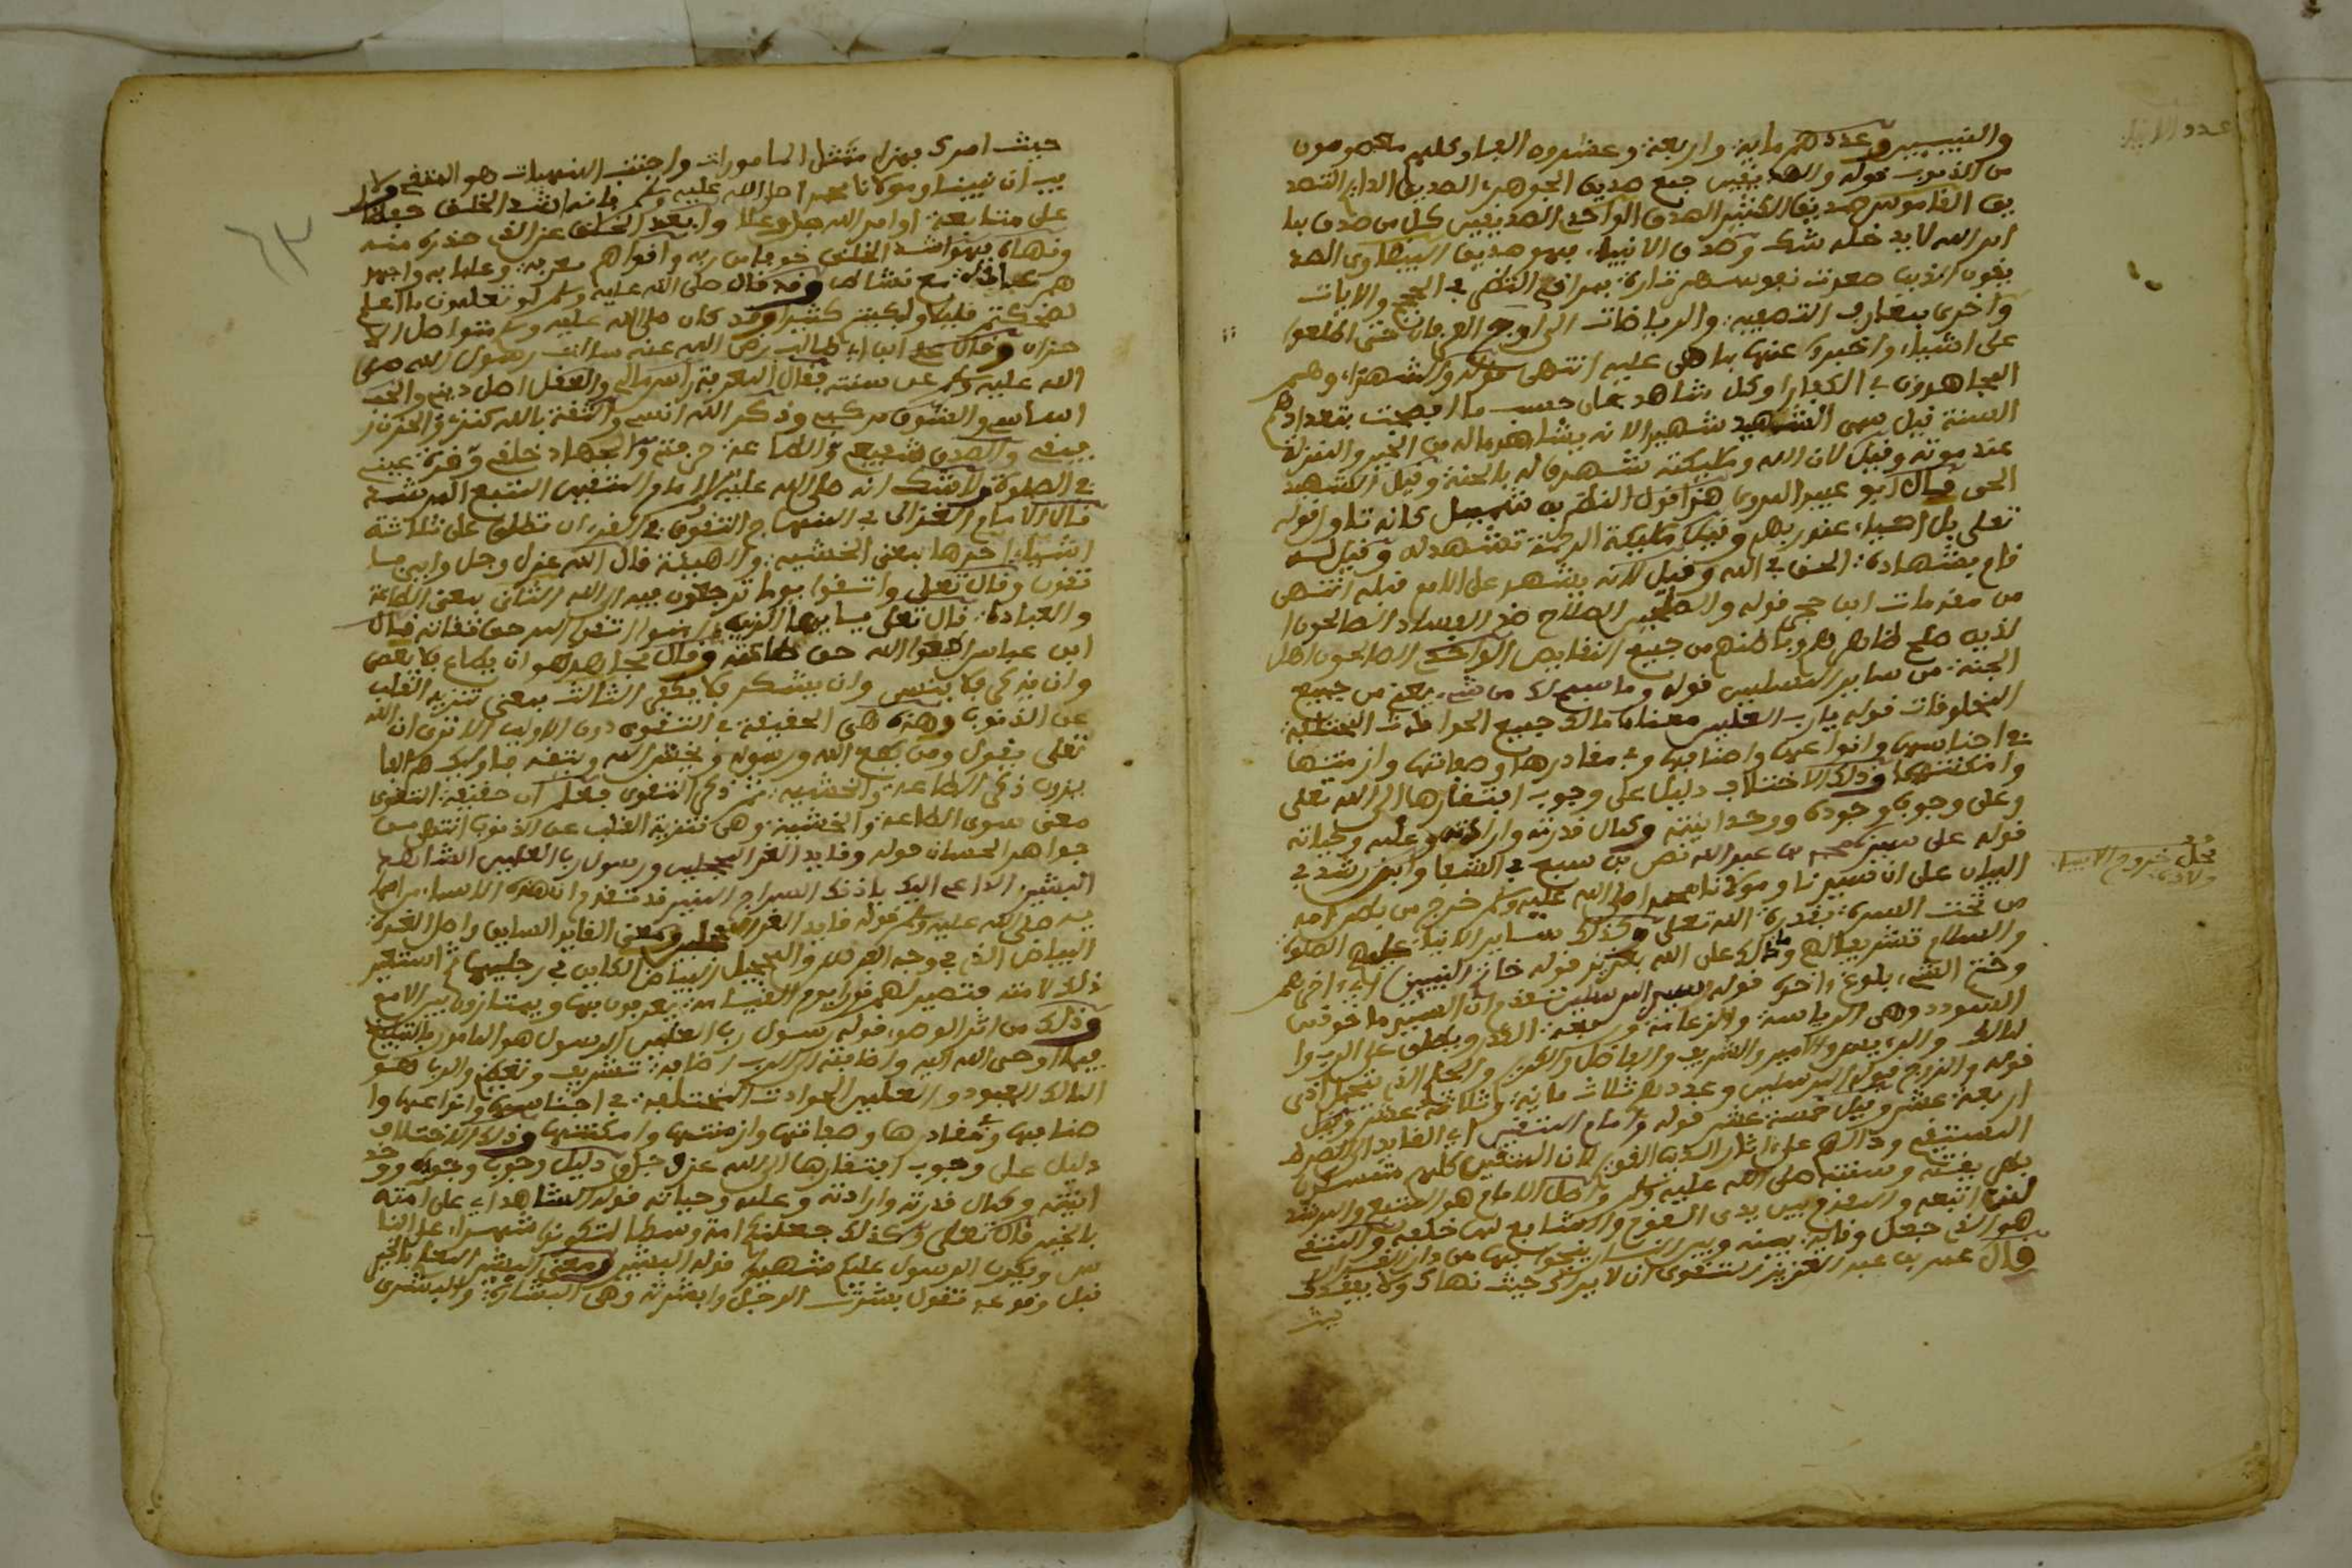 عدد الانبياء
والنبيين وعددهم ماية واربعة وعشرون الفا وكلهم معصومون
من الذنوب قوله والصديقين جمع صديق الجوهري الصديق الدايم التصد
يق القاموس صديق الكثير الصدق الواحدي الصديقين كل من صدق بما
امر الله لا يدخله شك وصدق الانبياء فهو صديق البيضاوي الصد
يقون الذين صعدت نفوسهم تارة بمراقي النظر في الحجج والايات
واخرى بمعارج التصفية والرياضات الى اوج العرفان حتى اطلعوا
على اشياء واخبروا عنها بما هي عليه انتهى قوله والشهداء وهم
المجاهدون في الكفار وكل شاهد على حسب ما افصحت بتعدادهم
السنة قيل سمي الشهيد شهيدا لانه يشاهد ماله من الخير والمنزلة
عند موته وقيل لان الله ومليكته شهدوا له بالجنة وقيل الشهيد
الحي قال ابو عبيد الهروي هذا قول النظر بن شميل كانه تاول قوله
تعلى بل احياء عند ربهم وقيل مليكة الرحمة تشهد له وقيل لسه
قام بشهادة الحق في الله وقيل لانه يشهد على الامم قبله انتهى
من مقدمات ابن حجر قوله والصالحين الصلاح ضد الفساد الصالحون ا
لذين صلح ظاهرهم وباطنهم من جميع النقايص الواحدي الصالحون اهل
الجنة من ساير المسلمين قوله وما سبح لك من شيء يعني من جميع
المخلوقات قوله يارب العلمين معناه مالك جميع الحوادث المختلفة
في اجناسها وانواعها واصنافها وفي مقاديرها وصفاتها وازمنتها
وامكنتها وذلك الاختلاف دليل على وجوب افتقارها الى الله تعلى
وعلى وجوب وجوده ووحدانيته وكمال قدرته وارادته وعلمه وحياته
قوله على سيدنا محمد بن عبد الله نص بن سبع في الشفا وابن رشد في
محل خروج الانبياء
ولادة
البيان على ان سيدنا ومولانا محمدا صلى الله عليه وسلم خرج من بطن امه
من تحت السرة بقدرة الله تعلى وكذلك ساير الانبياء عليهم الصلوة
والسلام تشريفا لهم وما ذلك على الله بعزيز قوله خاتم النبيين اي اخرهم
وختم الشيء بلوغ اخره قوله السيد المرسلين تقدم ان السيد ماخوذ من
السودد وهي الرياسة والزعامة ورفعة القدر ويطلق على الرب وا
لمالك والرييس والامير والشريف والفاضل والكريم والحليم الذي يتحمل اذى
قومه والزوج قوله المرسلين وعددهم ثلاث ماية وثلاثة عشر وقيل
اربعة عشر وقيل خمسة عشر قوله وامام المتقين اي القايد الى الصرط
المستقيم ودالهم على اثار الدين القويم لان المتقين كلهم متمسكون
بطريقته وسنته صلى الله عليه وسلم واصل الامام هو المتبع والمرشد
لمن اتبعه والمقدم بين يدي القوم والمشايع لمن خلفه والمتقي
هو الذي جعل وقاية بينه وبين النار ينجو بها من دار القرار
وقال عمر بن عبد العزيز التقوى ان لا يراك حيث نهاك ولا يفقدك
حيث
٦٣
حيث امرك بهذا ممتثل المامورات واجتنب المنهيات هو المتقي ولا
ريب ان نبينا ومولانا محمدا صلى الله عليه وسلم فانه اشد الخلق حفظا
على متابعة اوامر الله جل وعلا وابعد الخلق عن الذي حذره منه
ونهاه فهو اشد الخلق خوفا من ربه واقواهم معرفة وعلما به واجهد
هم عبادة مع نشاط وقد قال صلى الله عليه وسلم لو تعلمون ما اعلم
لضحكتم قليلا ولبكيتم كثيرا وقد كان صلى الله عليه وسلم متواصل الا
حزان وقال علي ابن ابي طالب رضي الله عنه سالت رسول الله صلى
الله عليه وسلم عن سنته فقال المعرفة راس مالي والعقل اصل ديني والحب
اساسي والشوق مركبي وذكر الله انيسي والثقة بالله كنزي والحزن ر
فيقي والصدق شفيعي والطاعة حرفتي والجهاد خلقي وقرة عيني
في الصلوة ولاشك انه صلى الله عليه وسلم امام المتقين المتبع المرشد
قال الامام الغزالي في المنهاج التقوى في القران تطلق على ثلاثة
اشياء احدها بمعنى الخشية والهيبة قال الله عزل وجل وايي فا
تقون وقال تعلى واتقوا يوما ترجعون فيه الى الله الثاني بمعنى الطاعة
والعبادة قال تعلى يا ايها الذين امنوا اتقوا الله حق تقاته قال
ابن عباس اطيعوا الله حق طاعته وقال مجاهد هو ان يطاع فلا يعصى
وان يذكر فلا ينسى وان يشكر فلا يكفر الثالث بمعنى تنزيه القلب
عن الذنوب وهذه هي الحقيقة في التقوى دون الاولين الا ترى ان الله
تعلى يقول ومن يطع الله ورسوله ويخش الله ويتقه فاوليك هم الفا
يزون ذكر الطاعة والخشية ثم ذكر التقوى فعلم ان حقيقة التقوى
معنى سوى الطاعة والخشية وهي تنزيه القلب عن الذنوب انتهى من
جواهر الحسان قوله وقايد الغر المحجلين ورسول رب العلمين الشاهد
البشير الداعي اليك باذنك السراج المنير قد تقدم ان هذه الاسماء من اسما
يه صلى الله عليه وسلم قوله قايد الغر المحجلين ومعنى القايد السابق واصل الغرة
البياض الذي في وجه الفرس والتحجيل البياض الكاين في رجليها استعير
ذلك لامته فتصير لهم نورا يوم القيامة يعرفون بها ويمتازون بين الامم
وذلك من اثر الوضوء قوله رسول رب العلمين الرسول هو المامور بالتبليغ
فيما اوحى الله اليه واضافته الى الرب اضافة تشريف وتعظيم والرب هو
المالك المعبود والعلمين الحوادث المختلفة في اجناسها وانواعها وا
صنافها وفي مقاديرها وصفاتها وازمنتها وامكنتها وذلك الاختلاف
دليل على وجوب افتقارها الى الله عزل وجل دليل وجوب وجوده ووحد
انيته وكمال قدرته وارادته وعلمه وحياته قوله الشاهد اي على امته
بالخير قال تعلى وكذلك جعلنكم امة وسطا لتكونوا شهداء على النا
س ويكون الرسول عليكم شهيدا قوله البشير ومعنى البشير
قبل وقوعه تقول بشرت الرجل وابشرته وهي البشارة والبشرى